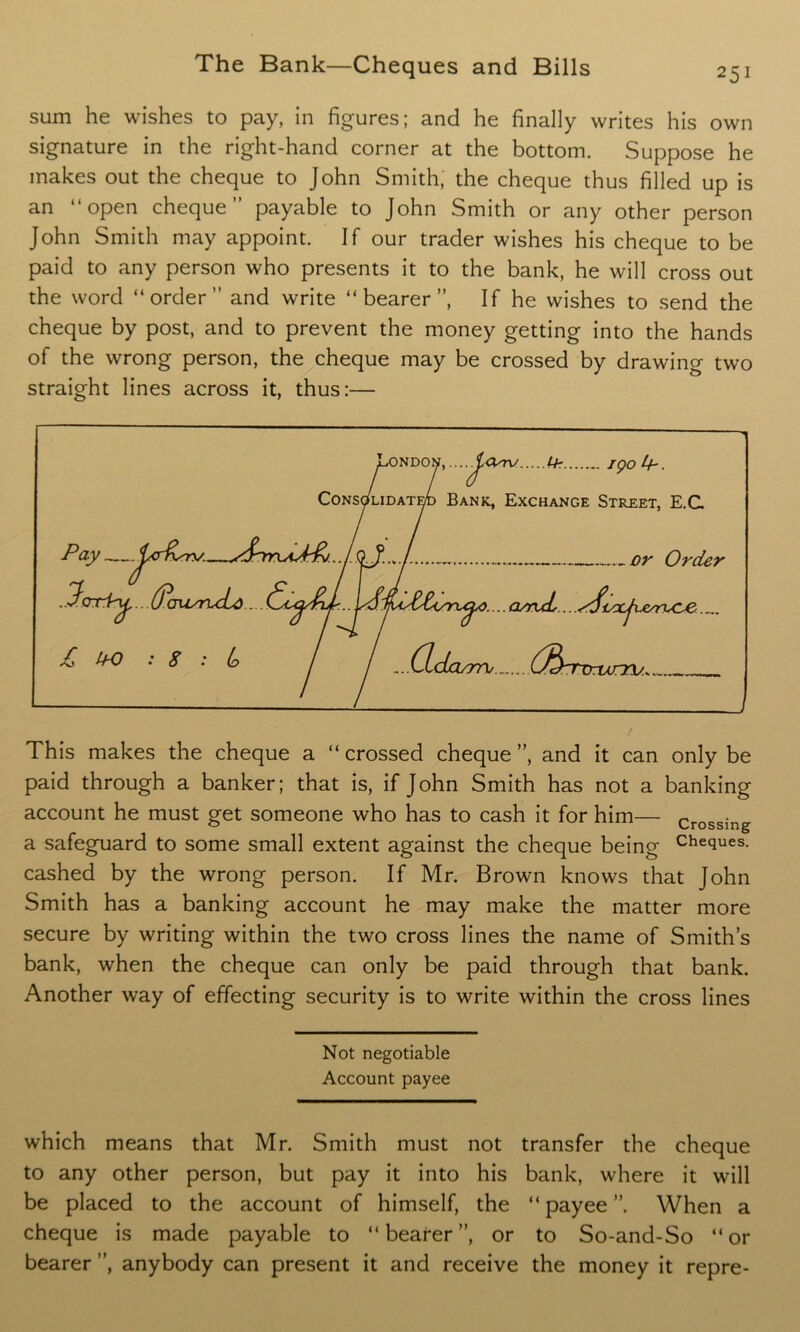 The Bank—Cheques and Bills
251
sum he wishes to pay, in figures; and he finally writes his own
signature in the right-hand corner at the bottom. Suppose he
makes out the cheque to John Smith, the cheque thus filled up is
an “open cheque” payable to John Smith or any other person
John Smith may appoint. If our trader wishes his cheque to be
paid to any person who presents it to the bank, he will cross out
the word “order” and write “bearer”, If he wishes to send the
cheque by post, and to prevent the money getting into the hands
of the wrong person, the cheque may be crossed by drawing two
straight lines across it, thus:—
LONDON,.....Jan.....4........190 4.
CONSOLIDATED BANK, EXCHANGE STREET, E.C.
Pay......John......Smith...Jr.........or Order
Forty...Pounds...Eight...Shillings....and....Sixpence....
£ 40 : 8 : 6
...Adam......Brown.........
This makes the cheque a “crossed cheque”, and it can only be
paid through a banker; that is, if John Smith has not a banking
account he must get someone who has to cash it for him—
Crossing
Cheques.
a safeguard to some small extent against the cheque being
cashed by the wrong person. If Mr. Brown knows that John
Smith has a banking account he may make the matter more
secure by writing within the two cross lines the name of Smith’s
bank, when the cheque can only be paid through that bank.
Another way of effecting security is to write within the cross lines
Not negotiable
Account payee
which means that Mr. Smith must not transfer the cheque
to any other person, but pay it into his bank, where it will
be placed to the account of himself, the “payee”. When a
cheque is made payable to “bearer”, or to So-and-So “or
bearer”, anybody can present it and receive the money it repre-